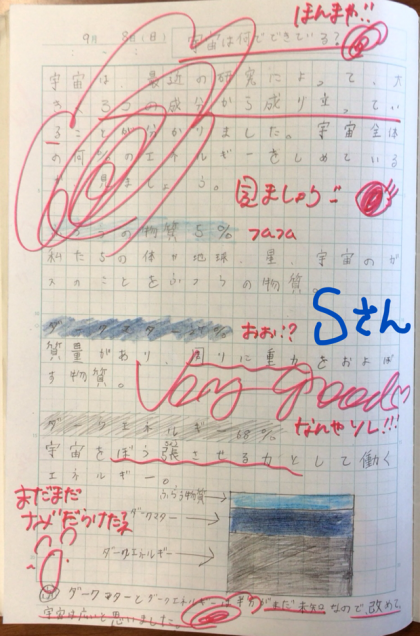 ほんまや!!
9月 8日(日) 宇宙は何でできている?
宇宙は、最近の研究によって、大
きく3つの成分から成り立ってい
ることが分かりました。宇宙全体
の何%のエネルギーをしめている
か見ましょう。
見ましょう!!
ふつうの物質 5%
フムフム
私たちの体や地球、星、宇宙のガ
スのことをふつうの物質。
Sさん
ダークマター 27%
おお!?
質量があり、周りに重力をおよぼ
す物質。
Very good
ダークエネルギー 68%
なんやソレ!!!
宇宙をぼう張させる力として働く
エネルギー。
ふつうの物質
ダークマター
ダークエネルギー
まだまだ
なぞだらけだネ
ダークマターとダークエネルギーは まだ未知なので、改めて、
宇宙は広いと思いました。